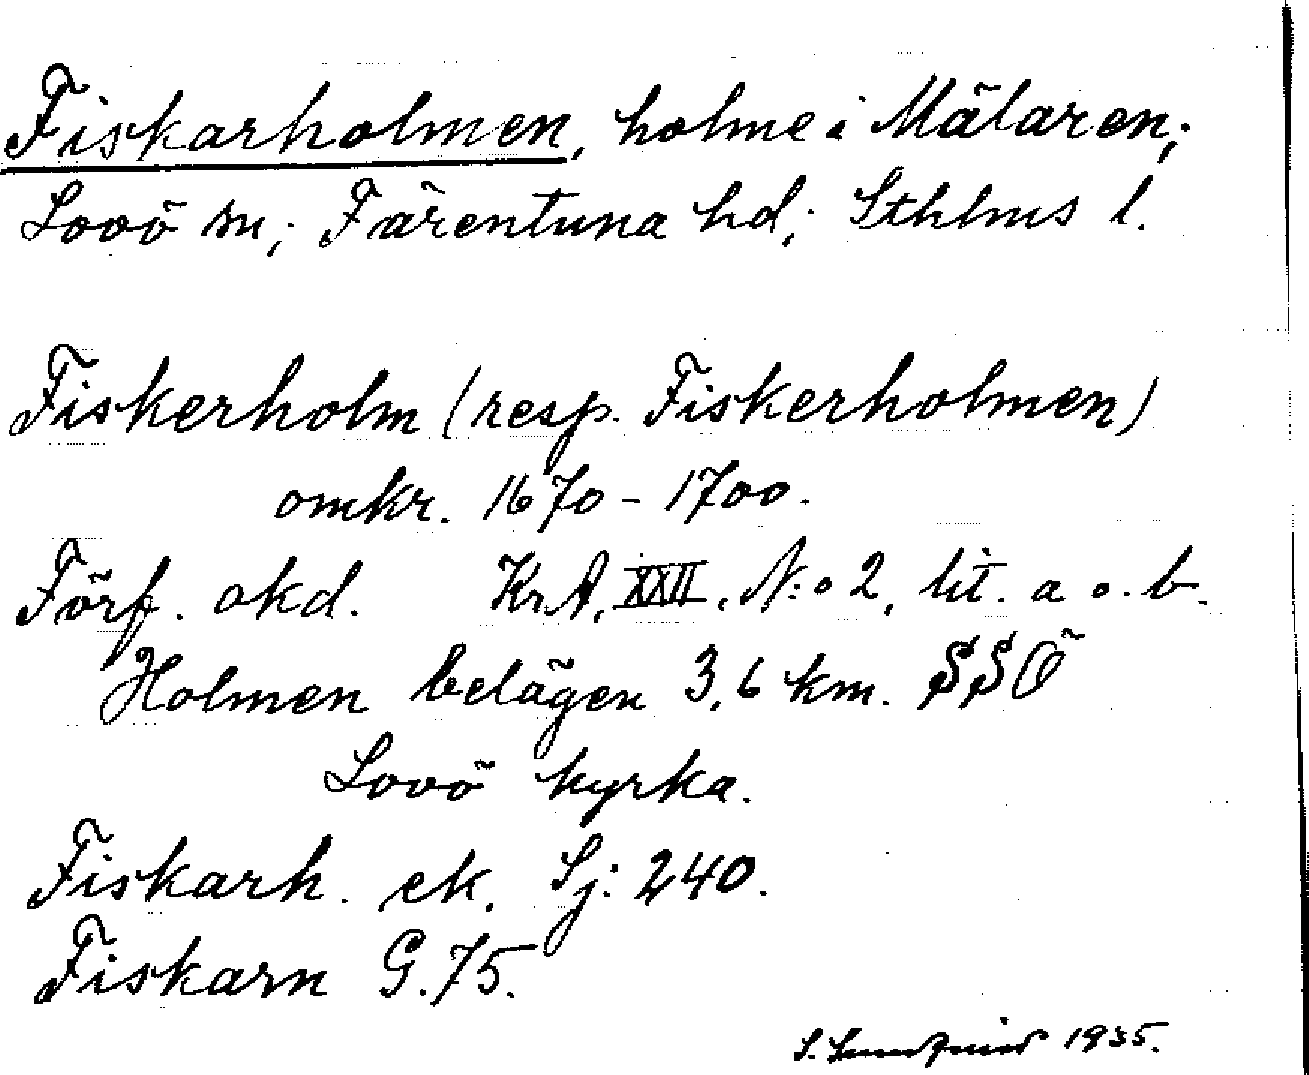 Fiskarholmen, holme i Mälaren;
Lovö sn; Färentuna hd; Sthlms l.
Fiskerholm (resp. Fiskerholmen)
omkr. 1670-1700.
Förf. okd. KrA, XXII, N:o 2, lit. a o. b.
Holmen belägen 3,6 km. SSÖ
Lovö kyrka.
Fiskarh. ek. Sj: 240.
Fiskarn G. 75.
S. 1935.